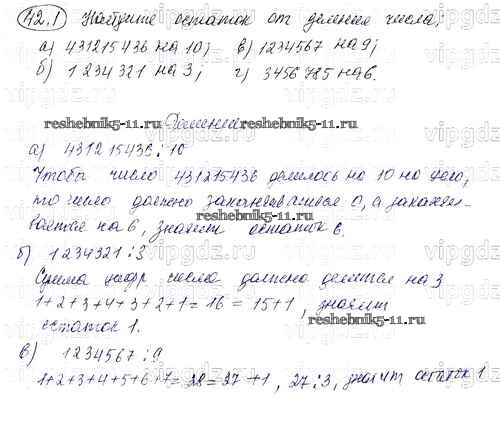 42.1 Найдите остаток от деления числа:
а) 431215436 на 10; в) 1234567 на 9;
б) 1234321 на 3; г) 3456785 на 6.
reshebnik5-11.ru Решение reshebnik5-11.ru
а) 431215436 : 10
Чтобы число 431215436 делилось на 10 на цело,
то число должно заканчиваться 0, а заканчи-
reshebnik5-11.ru
вается на 6, значит остаток 6.
б) 1234321 : 3
Сумма цифр числа должна делится на 3
1+2+3+4+3+2+1 = 16 = 15+1, значит
остаток 1.
reshebnik5-11.ru
в) 1234567 : 9
1+2+3+4+5+6+7 = 28 = 27+1, 27 : 3, значит остаток 1